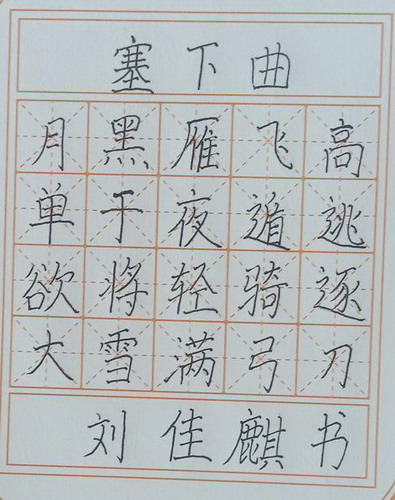 塞下曲
月黑雁飞高
单于夜遁逃
欲将轻骑逐
大雪满弓刀
刘佳麒书